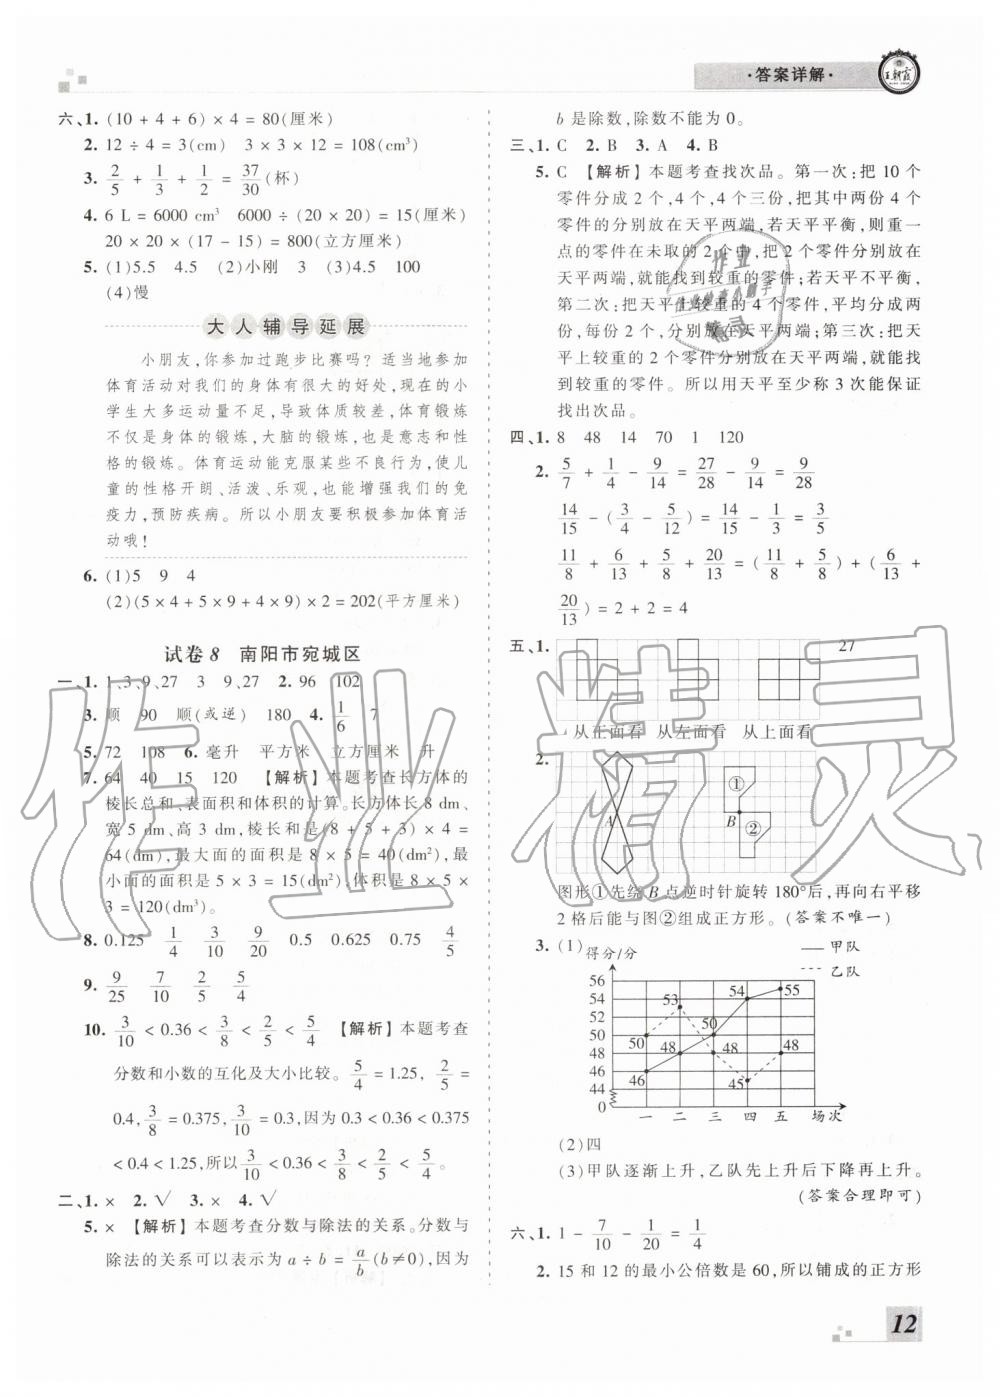 ·答案详解·
王朝霞
六、1. (10 + 4 + 6) × 4 = 80(厘米)
2. 12 ÷ 4 = 3(cm)　3 × 3 × 12 = 108(cm³)
3. 2/5 + 1/3 + 1/2 = 37/30(杯)
4. 6 L = 6000 cm³　6000 ÷ (20 × 20) = 15(厘米)
20 × 20 × (17 − 15) = 800(立方厘米)
5. (1)5.5　4.5　(2)小刚　3　(3)4.5　100
(4)慢
大人辅导延展
小朋友,你参加过跑步比赛吗？适当地参加
体育活动对我们的身体有很大的好处,现在的小
学生大多运动量不足,导致体质较差,体育锻炼
不仅是身体的锻炼,大脑的锻炼,也是意志和性
格的锻炼。体育运动能克服某些不良行为,使儿
童的性格开朗、活泼、乐观,也能增强我们的免
疫力,预防疾病。所以小朋友要积极参加体育活
动哦！
6. (1)5　9　4
(2)(5 × 4 + 5 × 9 + 4 × 9) × 2 = 202(平方厘米)
试卷 8　南阳市宛城区
一、1. 1、3、9、27　3　9、27　2. 96　102
3. 顺　90　顺(或逆)　180　4. 1/6　7
5. 72　108　6. 毫升　平方米　立方厘米　升
7. 64　40　15　120　【解析】本题考查长方体的
棱长总和、表面积和体积的计算。长方体长 8 dm、
宽 5 dm、高 3 dm,棱长和是(8 + 5 + 3) × 4 =
64(dm),最大面的面积是 8 × 5 = 40(dm²),最
小面的面积是 5 × 3 = 15(dm²),体积是 8 × 5 ×
3 = 120(dm³)。
8. 0.125　1/4　3/10　9/20　0.5　0.625　0.75　4/5
9. 9/25　7/10　2/5　5/4
10. 3/10 < 0.36 < 3/8 < 2/5 < 5/4　【解析】本题考查
分数和小数的互化及大小比较。5/4 = 1.25, 2/5 =
0.4, 3/8 = 0.375, 3/10 = 0.3,因为 0.3 < 0.36 < 0.375
< 0.4 < 1.25,所以 3/10 < 0.36 < 3/8 < 2/5 < 5/4。
二、1. ×　2. √　3. ×　4. √
5. ×　【解析】本题考查分数与除法的关系。分数与
除法的关系可以表示为 a ÷ b = a/b (b≠0),因为
b 是除数,除数不能为 0。
三、1. C　2. B　3. A　4. B
5. C　【解析】本题考查找次品。第一次:把 10 个
零件分成 2 个,4 个,4 个三份,把其中两份 4 个
零件的分别放在天平两端,若天平平衡,则重一
点的零件在未取的 2 个中,把 2 个零件分别放在
天平两端,就能找到较重的零件;若天平不平衡,
第二次:把天平上较重的 4 个零件,平均分成两
份,每份 2 个,分别放在天平两端;第三次:把天
平上较重的 2 个零件分别放在天平两端,就能找
到较重的零件。所以用天平至少称 3 次能保证
找出次品。
四、1. 8　48　14　70　1　120
2. 5/7 + 1/4 − 9/14 = 27/28 − 9/14 = 9/28
14/15 − (3/4 − 5/12) = 14/15 − 1/3 = 3/5
11/8 + 6/13 + 5/8 + 20/13 = (11/8 + 5/8) + (6/13 +
20/13) = 2 + 2 = 4
五、1.　27
从正面看　从左面看　从上面看
2.
① A B ②
图形①先绕 B 点逆时针旋转 180°后,再向右平移
2 格后能与图②组成正方形。(答案不唯一)
3. (1)
得分/分
甲队
乙队
56
54
52
50
48
46
44
0
46 48 50 54 55
50 53 48 45 48
一 二 三 四 五 场次
(2)四
(3)甲队逐渐上升,乙队先上升后下降再上升。
(答案合理即可)
六、1. 1 − 7/10 − 1/20 = 1/4
2. 15 和 12 的最小公倍数是 60,所以铺成的正方形
12
作业精灵